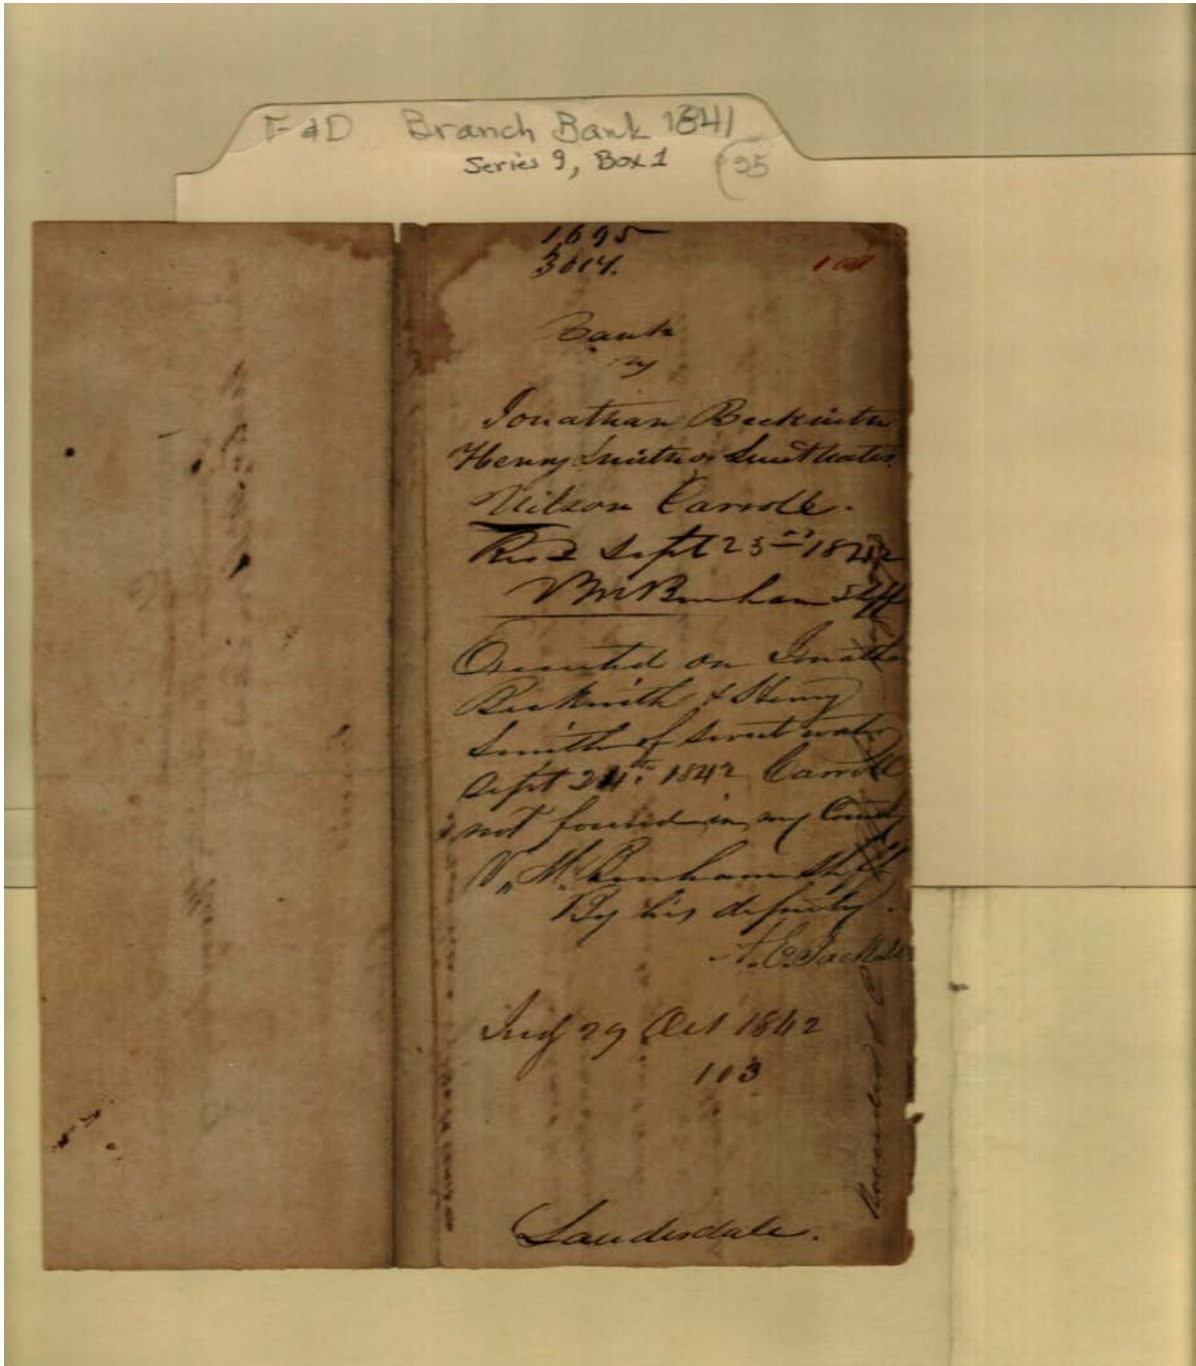 F&D Branch Bank 1841
Series 9, Box 1 (95
1695
3614.
Bank
vs
Jonathan Beckwith
Henry Smith of Sweet water
Wilson Carroll.
Recd Sept 23rd 1842
V M Benham Shff
Executed on Jonathan
Beckwith & Henry
Smith of Sweet water
Sept 24th 1842 Carroll
not found in my County
V. M. Benham Shff
By his deputy.
A. C. Jackson
Judg 29 Oct 1842
103
Lauderdale.